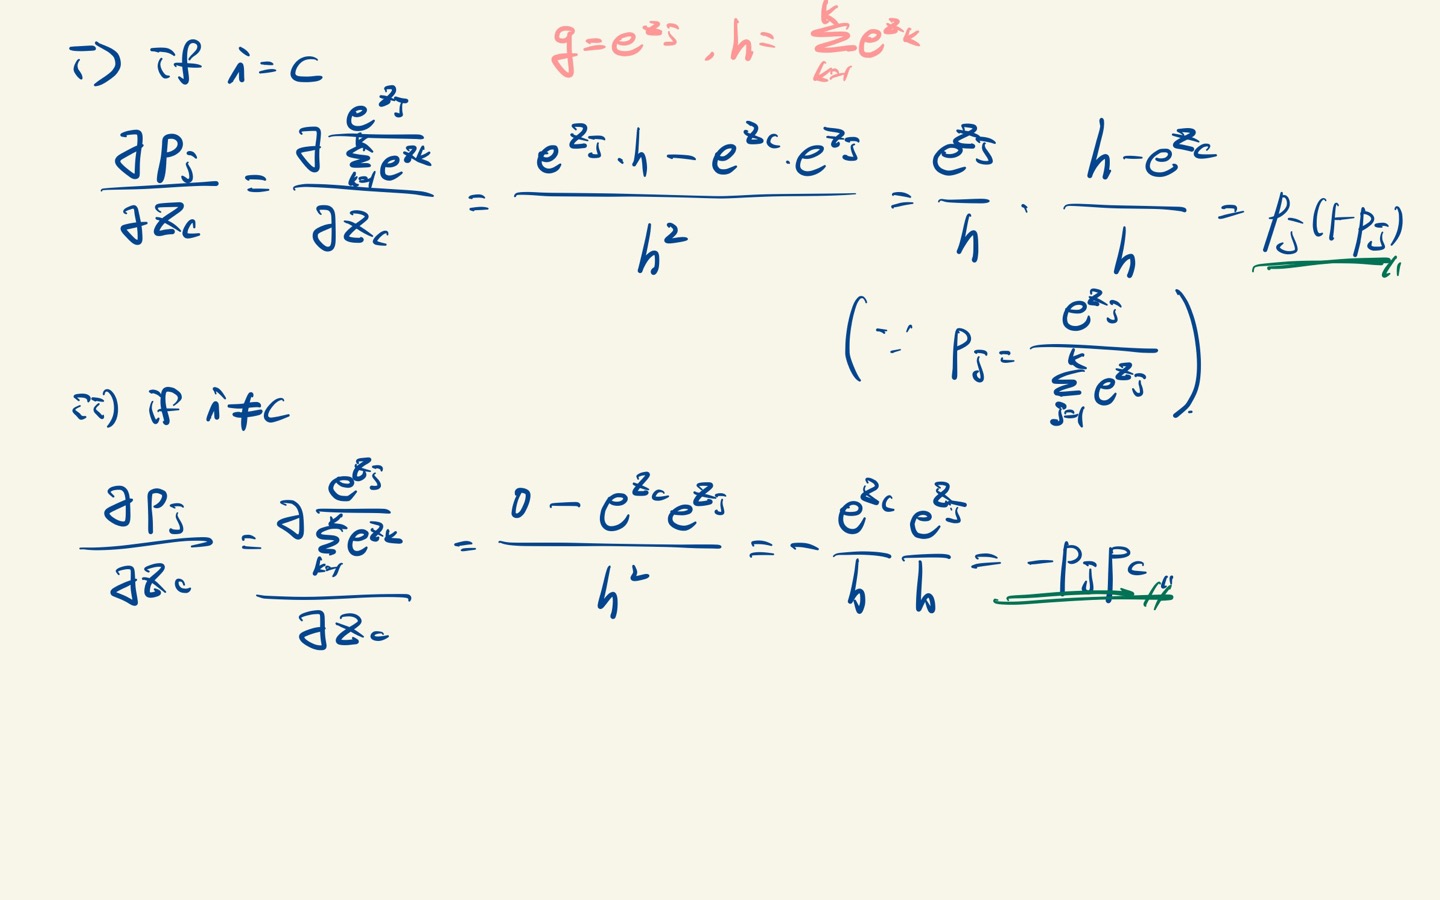 g = e^{z_j}, h = \sum_{k=1}^{k} e^{z_k}
i) if i = c
\frac{\partial p_j}{\partial z_c} = \frac{\partial \frac{e^{z_j}}{\sum_{k=1}^{k} e^{z_k}}}{\partial z_c} = \frac{e^{z_j} \cdot h - e^{z_c} \cdot e^{z_j}}{h^2} = \frac{e^{z_j}}{h} \cdot \frac{h - e^{z_c}}{h} = p_j(1-p_j)
(∵ p_j = \frac{e^{z_j}}{\sum_{j=1}^{k} e^{z_j}})
ii) if i ≠ c
\frac{\partial p_j}{\partial z_c} = \frac{\partial \frac{e^{z_j}}{\sum_{k=1}^{k} e^{z_k}}}{\partial z_c} = \frac{0 - e^{z_c} e^{z_j}}{h^2} = - \frac{e^{z_c}}{h} \frac{e^{z_j}}{h} = -p_j p_c